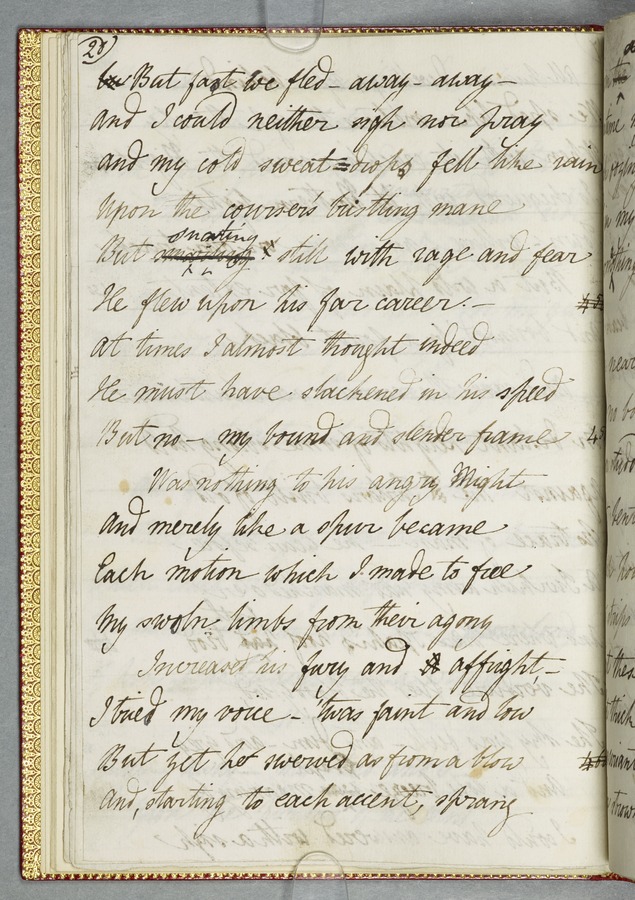 20
But fast we fled - away - away -
And I could neither sigh nor pray
And my cold sweat=drops fell like rain
Upon the courser's bristling mane
snorting
But still with rage and fear
He flew upon his far career. -
At times I almost thought indeed
He must have slackened in his speed
But no - my bound and slender frame
Was nothing to his angry Might
And merely like a spur became
Each motion which I made to free
My swoln limbs from their agony
Increased his fury and affright, -
I tried my voice - 'twas faint and low
But yet he swerved as from a blow
And, starting to each accent, sprang